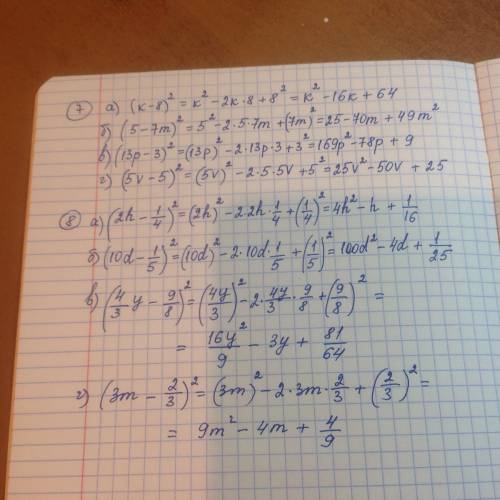 ⑦ а) (к-8)² = к² - 2к·8 + 8² = к² - 16к + 64
б) (5-7m)² = 5² - 2·5·7m + (7m)² = 25 - 70m + 49m²
в) (13p-3)² = (13p)² - 2·13p·3 + 3² = 169p² - 78p + 9
г) (5v-5)² = (5v)² - 2·5·5v + 5² = 25v² - 50v + 25
⑧ а) (2h - 1/4)² = (2h)² - 2·2h·1/4 + (1/4)² = 4h² - h + 1/16
б) (10d - 1/5)² = (10d)² - 2·10d·1/5 + (1/5)² = 100d² - 4d + 1/25
в) (4/3 y - 9/8)² = (4y/3)² - 2·4y/3·9/8 + (9/8)² =
= 16y²/9 - 3y + 81/64
г) (3m - 2/3)² = (3m)² - 2·3m·2/3 + (2/3)² =
= 9m² - 4m + 4/9